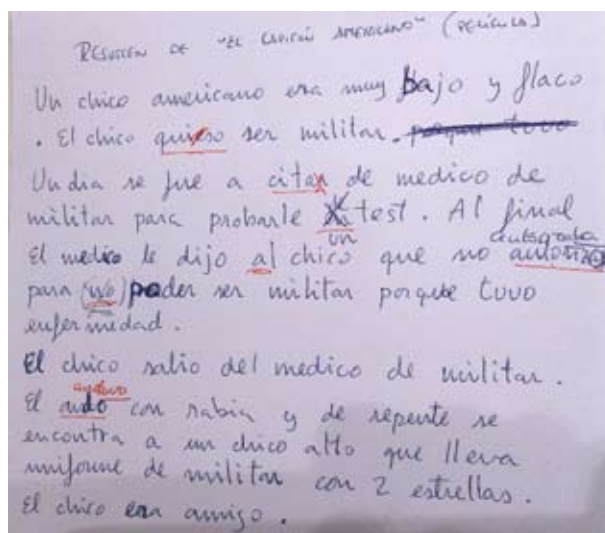 RESUMEN DE "EL CAPITÁN AMERICANO" (PELÍCULA)
Un chico americano era muy bajo y flaco
. El chico quiso ser militar. porque tuvo
Un dia se fue a citar de medico de
militar para probarle test. Al final
un
El medico le dijo al chico que no
para (no) poder ser militar porque tuvo
enfermedad.
El chico salio del medico de militar.
anduvo
El ando con rabia y de repente se
encontra a un chico alto que lleva
uniforme de militar con 2 estrellas.
El chico era amigo.